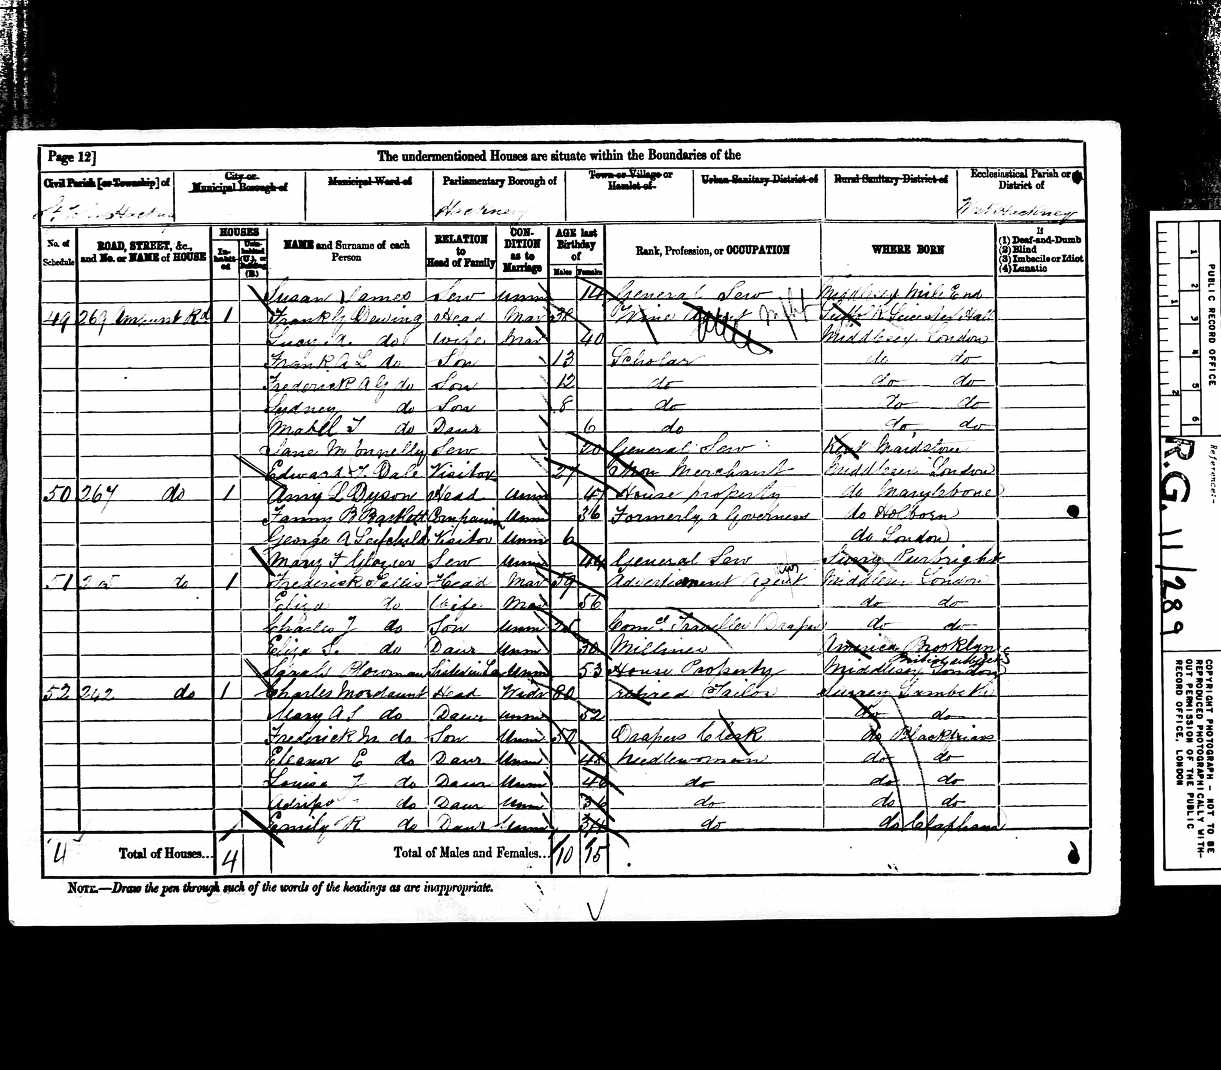 Page 12]
The undermentioned Houses are situate within the Boundaries of the
Civil Parish [or Township] of
City or Municipal Borough of
Municipal Ward of
Parliamentary Borough of
Town or Village or Hamlet of
Urban Sanitary District of
Rural Sanitary District of
Ecclesiastical Parish or District of
Hackney
West Hackney
No. of Schedule
ROAD, STREET, &c., and No. or NAME of HOUSE
HOUSES
In-habit-ed
Unin-habited (U.), or Building (B.)
NAME and Surname of each Person
RELATION to Head of Family
CON-DITION as to Marriage
AGE last Birthday of
Males
Females
Rank, Profession, or OCCUPATION
WHERE BORN
If
(1) Deaf-and-Dumb
(2) Blind
(3) Imbecile or Idiot
(4) Lunatic
Susan James Serv Unm 14 General Serv Middlesex Mile End
49 269 Amhurst Rd 1 Frank G Dewing Head Mar 38 Wine
Lucy A. do Wife Mar 40 Middlesex London
Frank A L do Son 13 Scholar do do
Frederick A G do Son 12 do do do
Sydney do Son 8 do do do
Mabel do Daur 6 do do do
Jane M Connelly Serv 20 General Serv Kent Maidstone
Edward Dale Visitor 27 Merchant Middlesex London
50 267 do 1 Amy L Dyson Head Unm 47 House property do Marylebone
Fanny B Bartlett Companion Unm 36 Formerly a Governess do Holborn
George A Visitor Unm 6 do London
Mary F Glover Serv Unm 44 General Serv Surrey Purbright
51 do 1 Frederick Head Mar 59 Advertisement Agent Middlesex London
Eliza do Wife Mar 56 do do
Charles do Son Unm Coml Traveller Draper do do
Eliza S. do Daur Unm 30 Milliner America Brooklyn
British subject
Sarah Plowman Sister in Law Unm 53 House Property Middlesex London
52 242 do 1 Charles Mordaunt Head Widr 80 retired Tailor Surrey Lambeth
Mary A S do Daur Unm 52 do do
Frederick M do Son Unm 50 Drapers Clerk do Blackfriars
Eleanor E do Daur Unm 48 Needlewoman do do
Louisa do Daur Unm 40 do do do
do Daur Unm 36 do do do
Emily R do Daur Unm 34 do do Clapham
4 Total of Houses... 4 Total of Males and Females... 10 15
NOTE.—Draw the pen through such of the words of the headings as are inappropriate.
PUBLIC RECORD OFFICE
Reference:-
R.G. 11/289
COPYRIGHT PHOTOGRAPH - NOT TO BE REPRODUCED PHOTOGRAPHICALLY WITHOUT PERMISSION OF THE PUBLIC RECORD OFFICE, LONDON